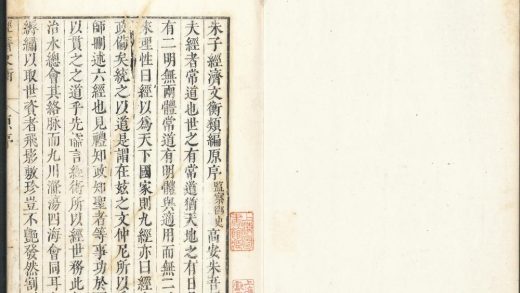 朱子經濟文衡類編原序 監察御史 高安朱吾
夫經者常道也世之有常道猶天地之有日
有二明無兩體常道有明體與適用而無二
來聖性曰經以為天下國家則九經亦曰經
政備矣統之以道是謂在玆之文仲尼所以
師刪述六經也見禮知政知聖者等事功於
以貫之之道乎先儒言經術所以經世務此
治水總會其絡脉而九川滌蕩四海會同耳
編以取世資者飛影敷珍豈不艷發然割
經濟文衡 原序